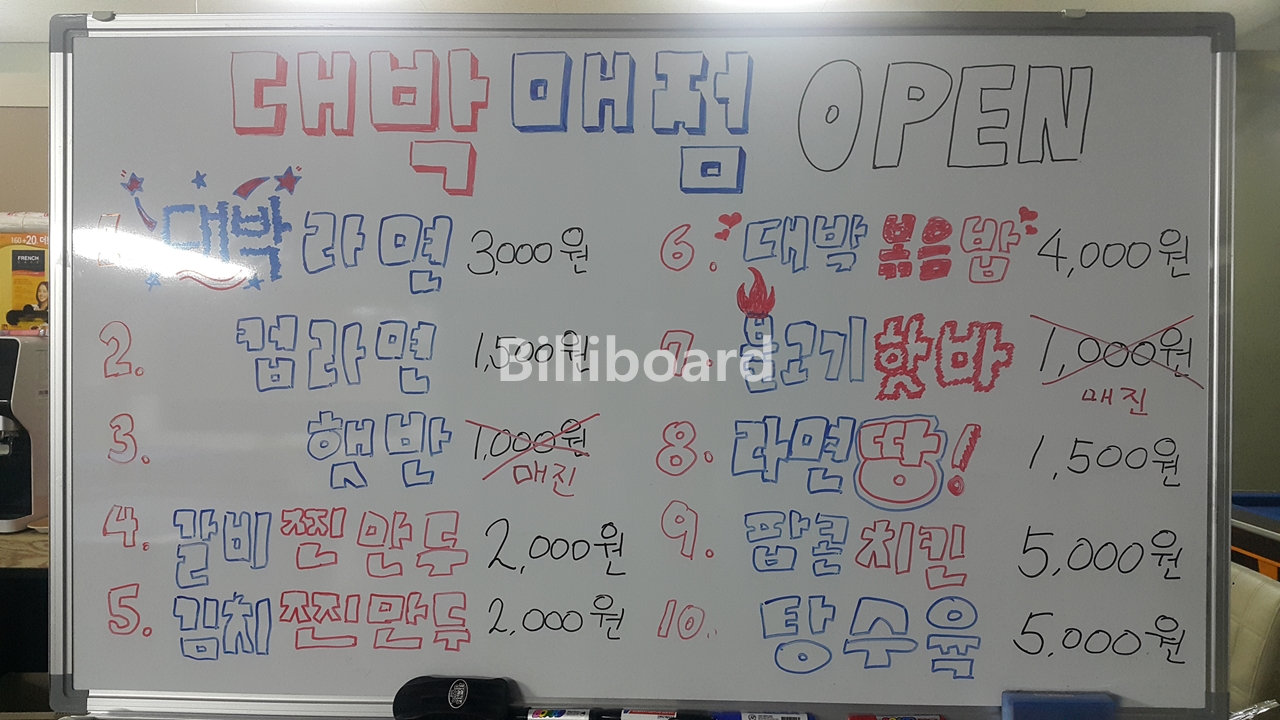 대박 매점 OPEN
1. 대박 라면 3,000원
2. 컵라면 1,500원
3. 햇반 1,000원
매진
4. 갈비 찐만두 2,000원
5. 김치 찐만두 2,000원
6. 대박 볶음밥 4,000원
7. 불고기 핫바 1,000원
매진
8. 라면땅! 1,500원
9. 팝콘 치킨 5,000원
10. 탕수육 5,000원
Billiboard
FRENCH